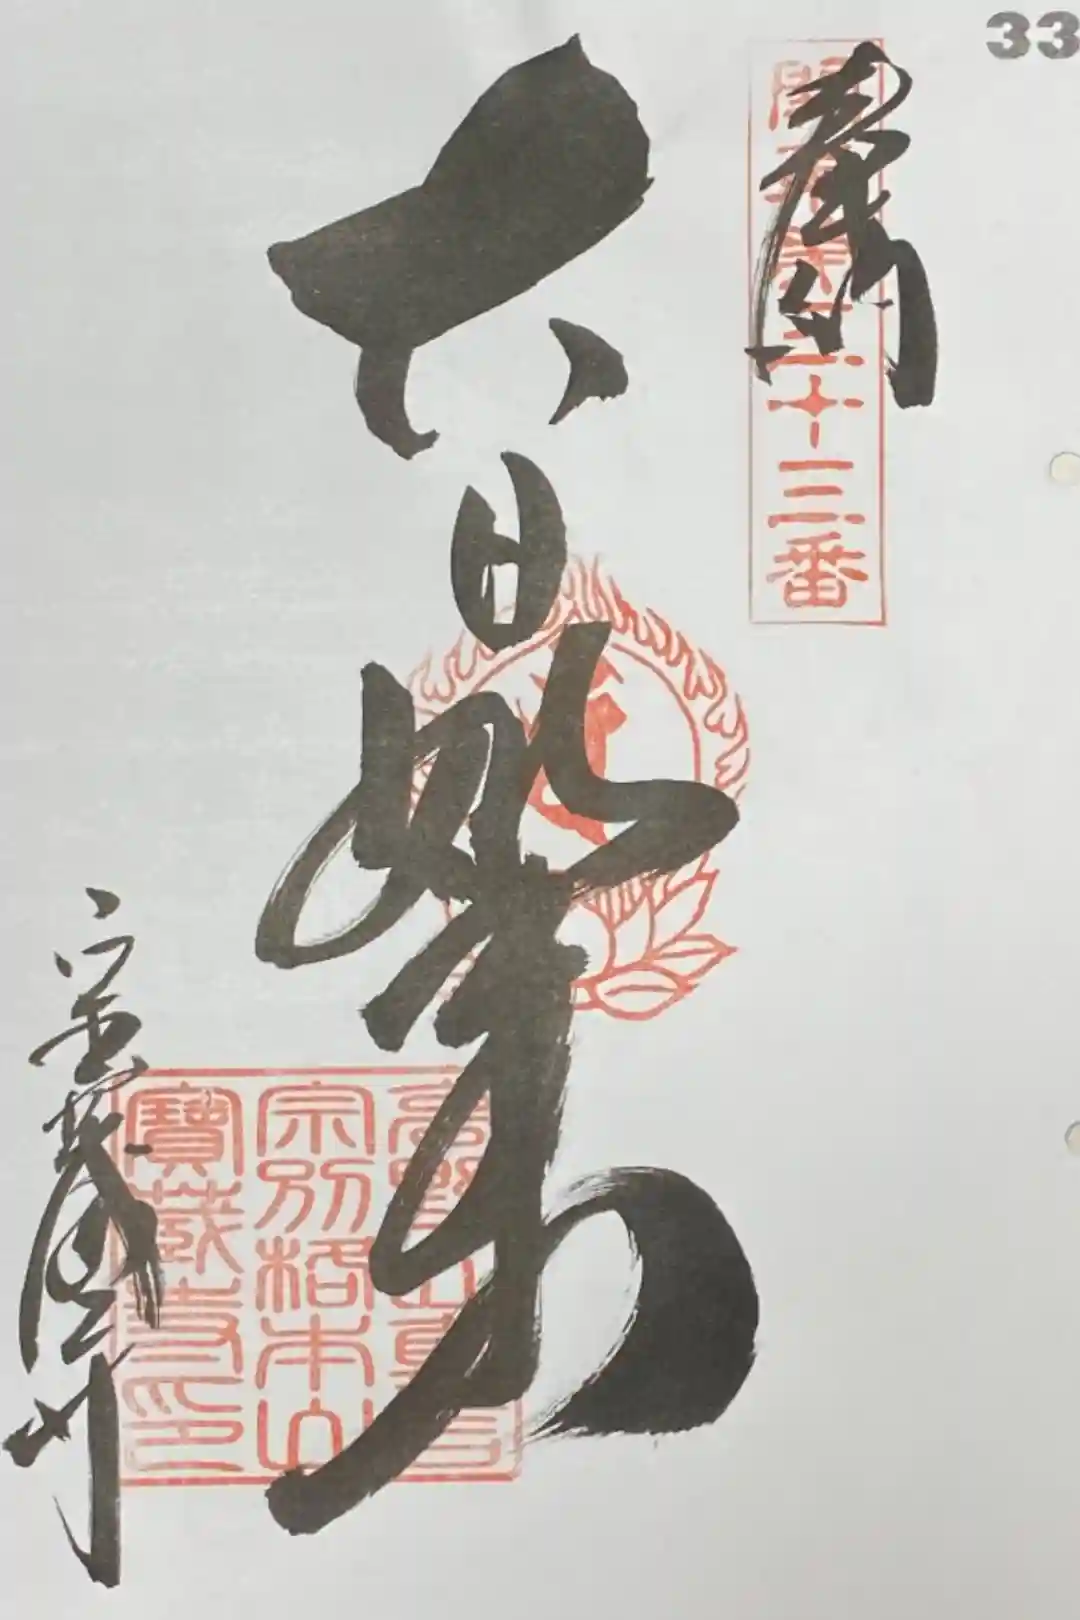 33
奉納
三十三番
大日如来
高野山真言
宗別格本山
寶蔵寺印